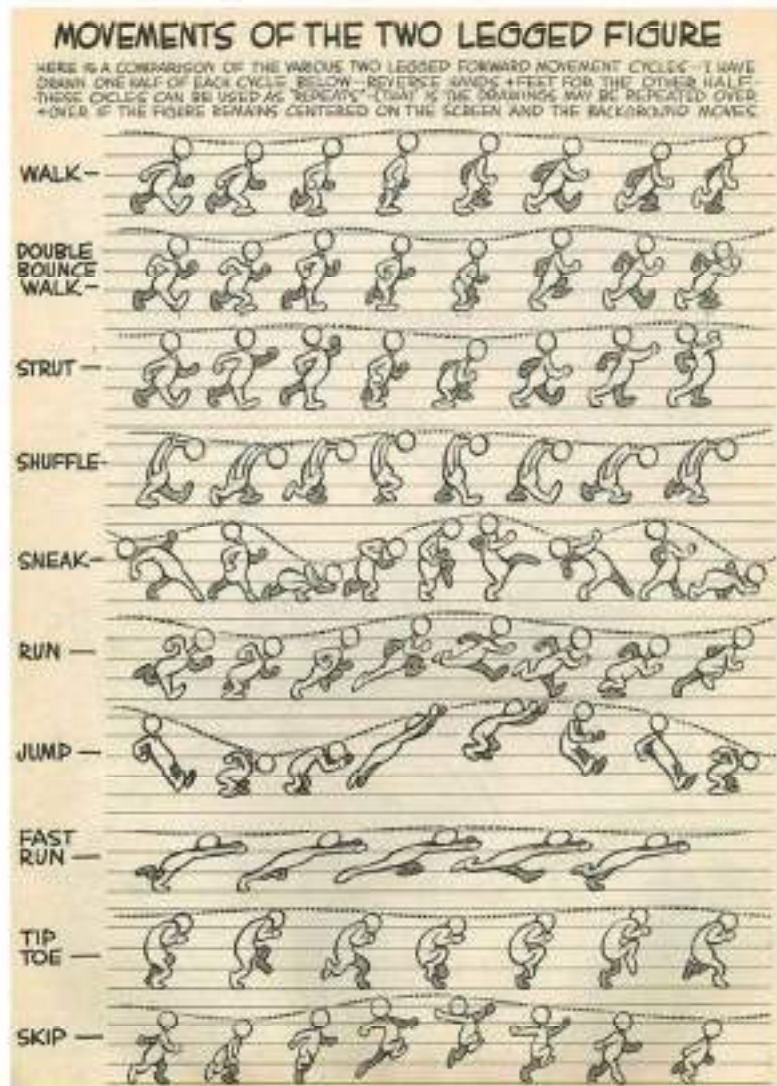 MOVEMENTS OF THE TWO LEGGED FIGURE
HERE IS A COMPARISON OF THE VARIOUS TWO LEGGED FORWARD MOVEMENT CYCLES--I HAVE
DRAWN ONE HALF OF EACH CYCLE BELOW--REVERSE HANDS + FEET FOR THE OTHER HALF-
-THESE CYCLES CAN BE USED AS "REPEATS"-(THAT IS THE DRAWINGS MAY BE REPEATED OVER
+ OVER IF THE FIGURE REMAINS CENTERED ON THE SCREEN AND THE BACKGROUND MOVES
WALK—
DOUBLE
BOUNCE
WALK—
STRUT—
SHUFFLE-
SNEAK—
RUN —
JUMP —
FAST
RUN —
TIP
TOE —
SKIP —